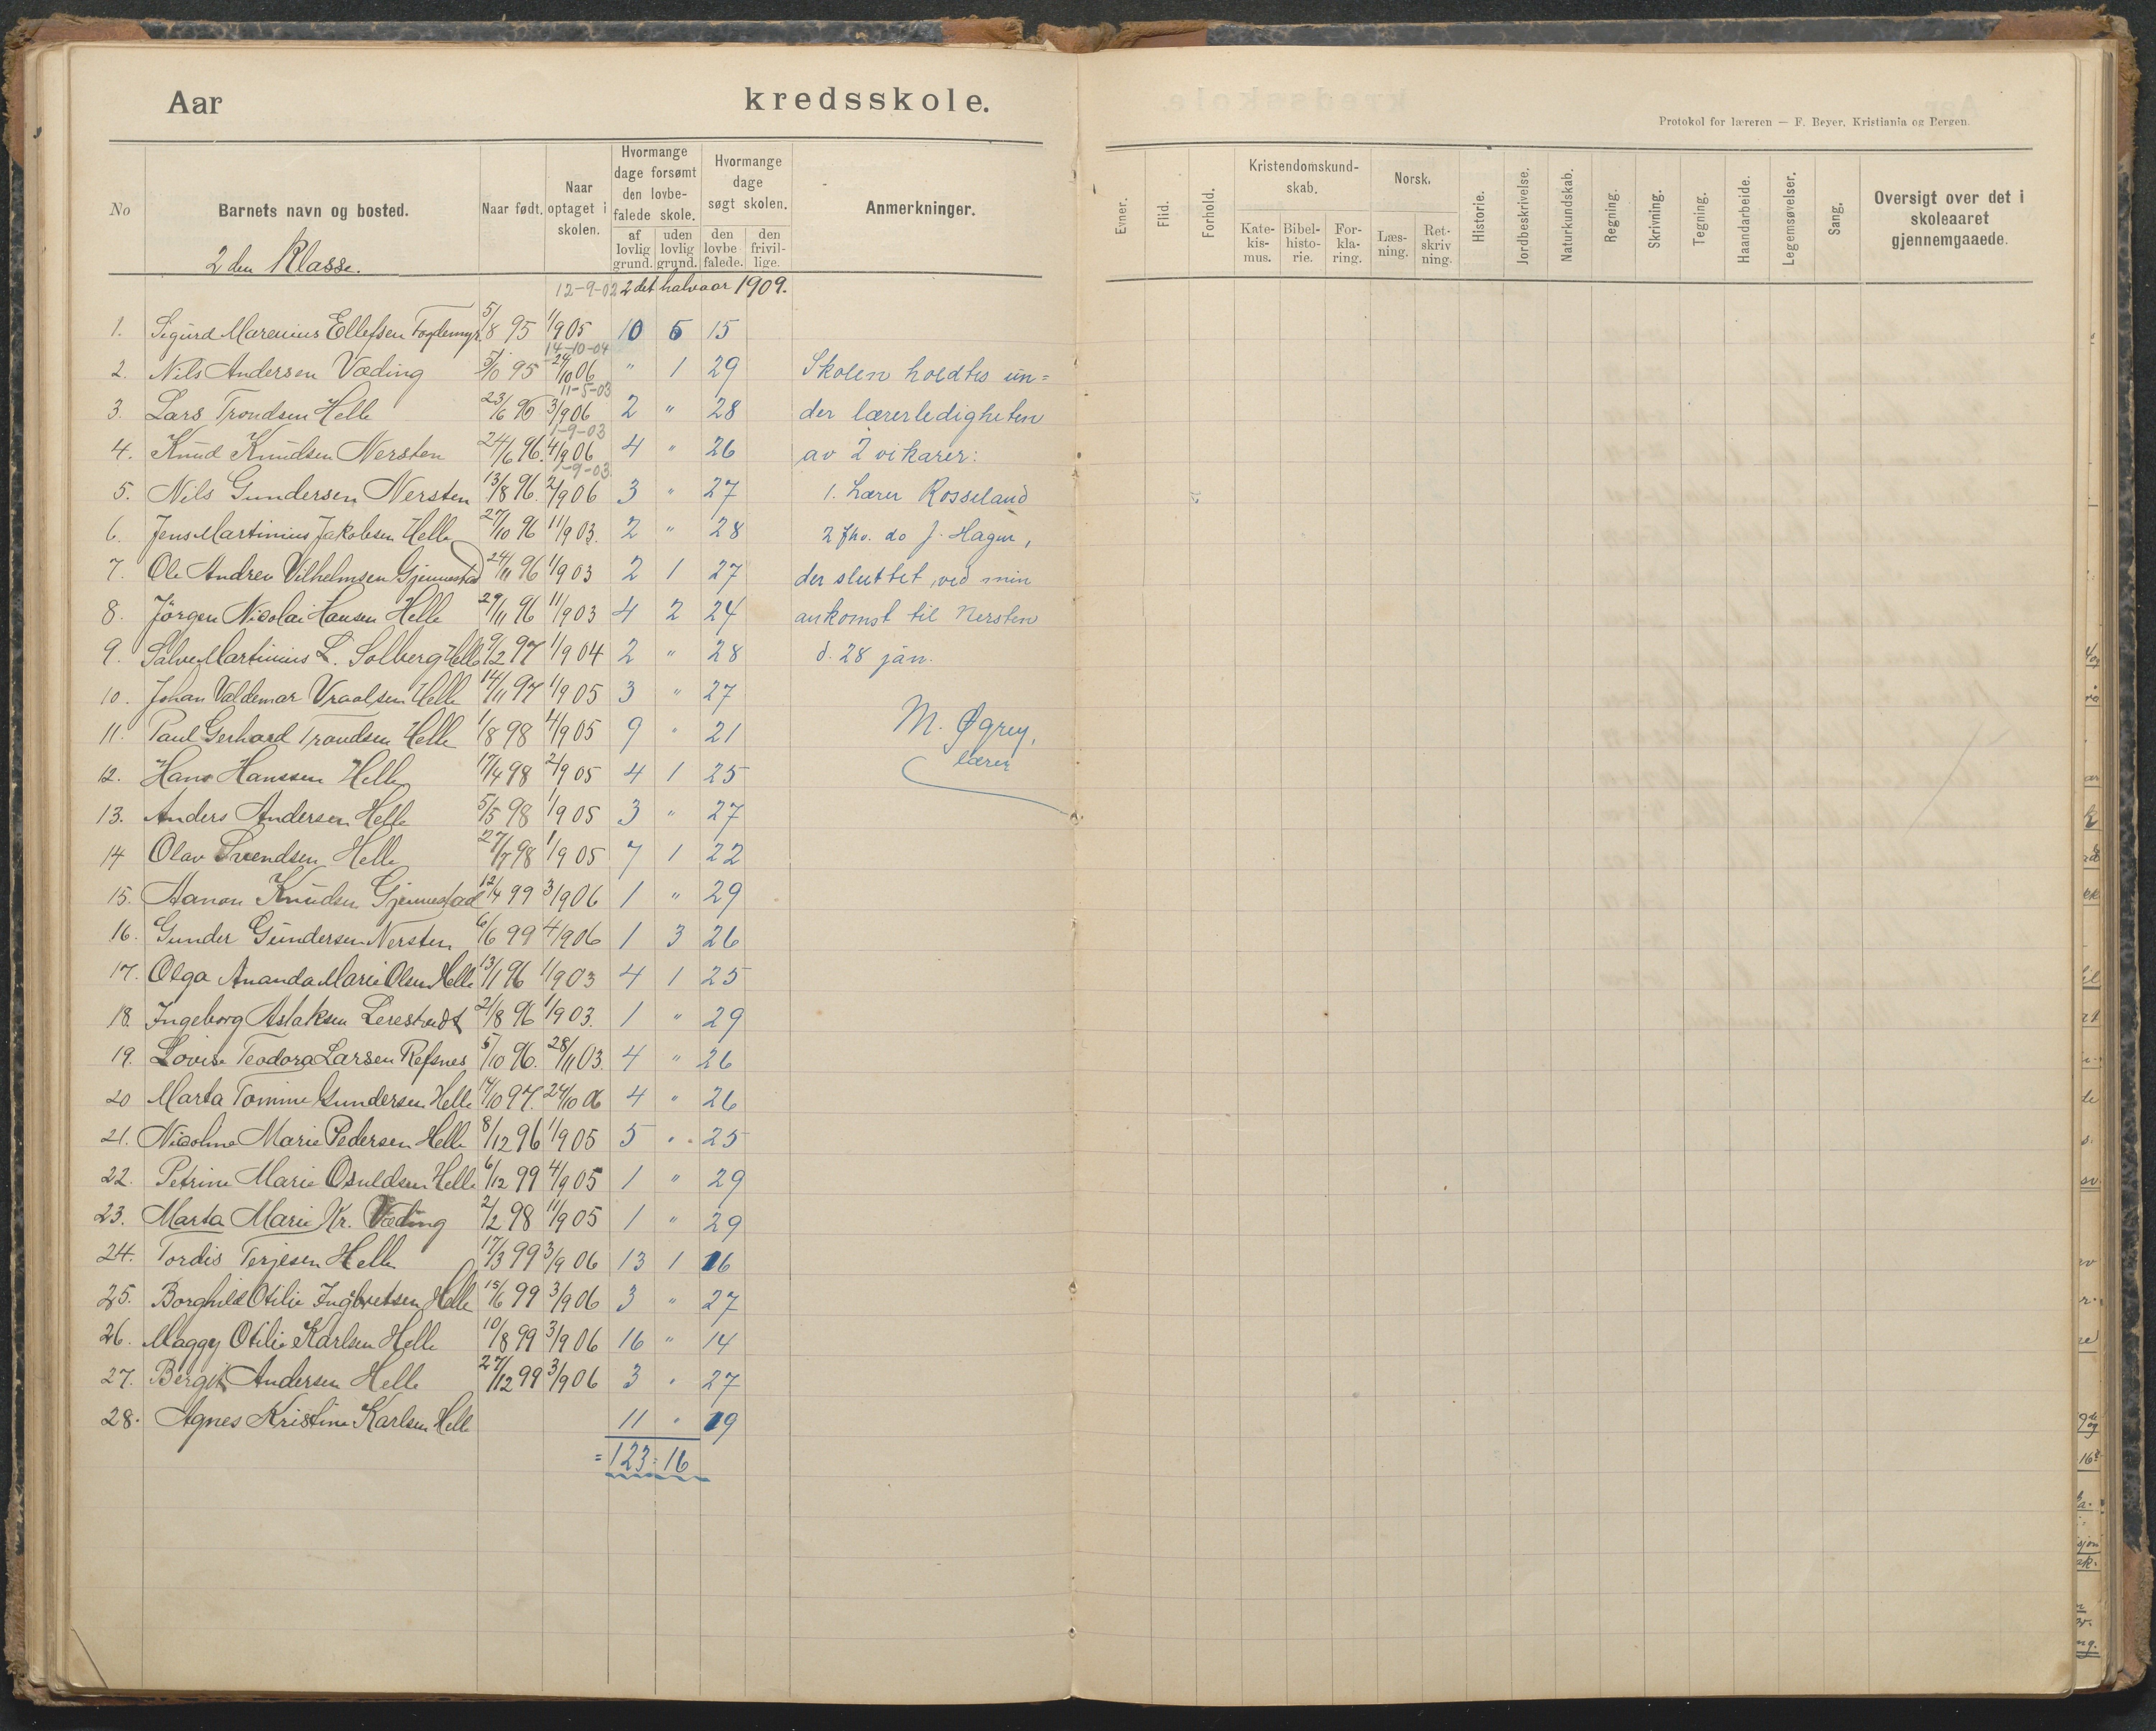 Aar
kredsskole.
No
Barnets navn og bosted.
Naar født.
Naar optaget i skolen.
Hvormange dage forsømt den lovbefalede skole.
af lovlig grund.
uden lovlig grund.
Hvormange dage søgt skolen.
den lovbefalede.
den frivillige.
Anmerkninger.
2den Klasse.
12-9-02 2det halvaar 1909.
1. Sigurd Marenius Ellefsen 5/8 95 1/9 05 10 5 15
14-10-04
2. Nils Andersen Væding 5/10 95 24/10 06 " 1 29
11-5-03
3. Lars Trondsen Helle 23/6 96 3/9 06 2 " 28
1-9-03
4. Knud Knudsen Nersten 24/6 96. 4/9 06 4 " 26
1-9-03
5. Nils Gundersen Nersten 13/8 96. 2/9 06 3 " 27
6. Jens Martinius Jakobsen Helle 27/10 96 11/9 03. 2 " 28
7. Ole Andrev Vilhelmsen Gjennestad 24/11 96 1/9 03 2 1 27
8. Jörgen Nicolai Hansen Helle 29/11 96 11/9 03 4 2 24
9. Salve Martinius L. Solberg Helle 9/2 97 1/9 04 2 " 28
10. Johan Valdemar Vraalsen Helle 14/11 97 1/9 05 3 " 27
11. Paul Gerhard Trondsen Helle 1/8 98 4/9 05 9 " 21
12. Hans Hanssen Helle 17/4 98 2/9 05 4 1 25
13. Anders Andersen Helle 5/5 98 1/9 05 3 " 27
14 Olav Svendsen Helle 27/7 98 1/9 05 7 1 22
15. Aanon Knudsen Gjennestad 12/4 99 3/9 06 1 " 29
16. Gunder Gundersen Nersten 6/6 99 4/9 06 1 3 26
17. Olga Ananda Marie Olsen Helle 13/1 96 1/9 03 4 1 25
18. Ingeborg Aslaksen Lerestvedt 21/8 96 1/9 03. 1 " 29
19. Lovise Teodora Larsen Refsnes 5/10 96. 28/11 03. 4 " 26
20 Marta Tomine Gundersen Helle 14/10 97. 24/10 06 4 " 26
21. Nicoline Marie Pedersen Helle 8/12 96 1/9 05 5 " 25
22. Petrine Marie Osuldsen Helle 6/12 99 4/9 05 1 " 29
23. Marta Marie Kr. Væding 2/2 98 11/9 05 1 " 29
24. Tordis Terjesen Helle 17/3 99 3/9 06 13 1 16
25. Borghild Otilie Ingbretsen Helle 15/6 99 3/9 06 3 " 27
26. Maggy Otilie Karlsen Helle 10/8 99 3/9 06 16 " 14
27. Bergit Andersen Helle 27/12 99 3/9 06 3 " 27
28. Agnes Kristine Karlsen Helle 11 " 19
= 123 = 16
Skolen holdtes un=
der lærerledigheten
av 2 vikarer:
1. Lærer Rosseland
2 fhv. do J. Hagen,
der sluttet, ved min
ankomst til Nersten
d. 28 jan.
M. Øgrey,
lærer
Protokol for læreren — F. Beyer, Kristiania og Bergen.
Evner.
Flid.
Forhold.
Kristendomskundskab.
Katekismus.
Bibelhistorie.
Forklaring.
Norsk.
Læsning.
Retskrivning.
Historie.
Jordbeskrivelse.
Naturkundskab.
Regning.
Skrivning.
Tegning.
Haandarbeide.
Legemsøvelser.
Sang.
Oversigt over det i
skoleaaret
gjennemgaaede.